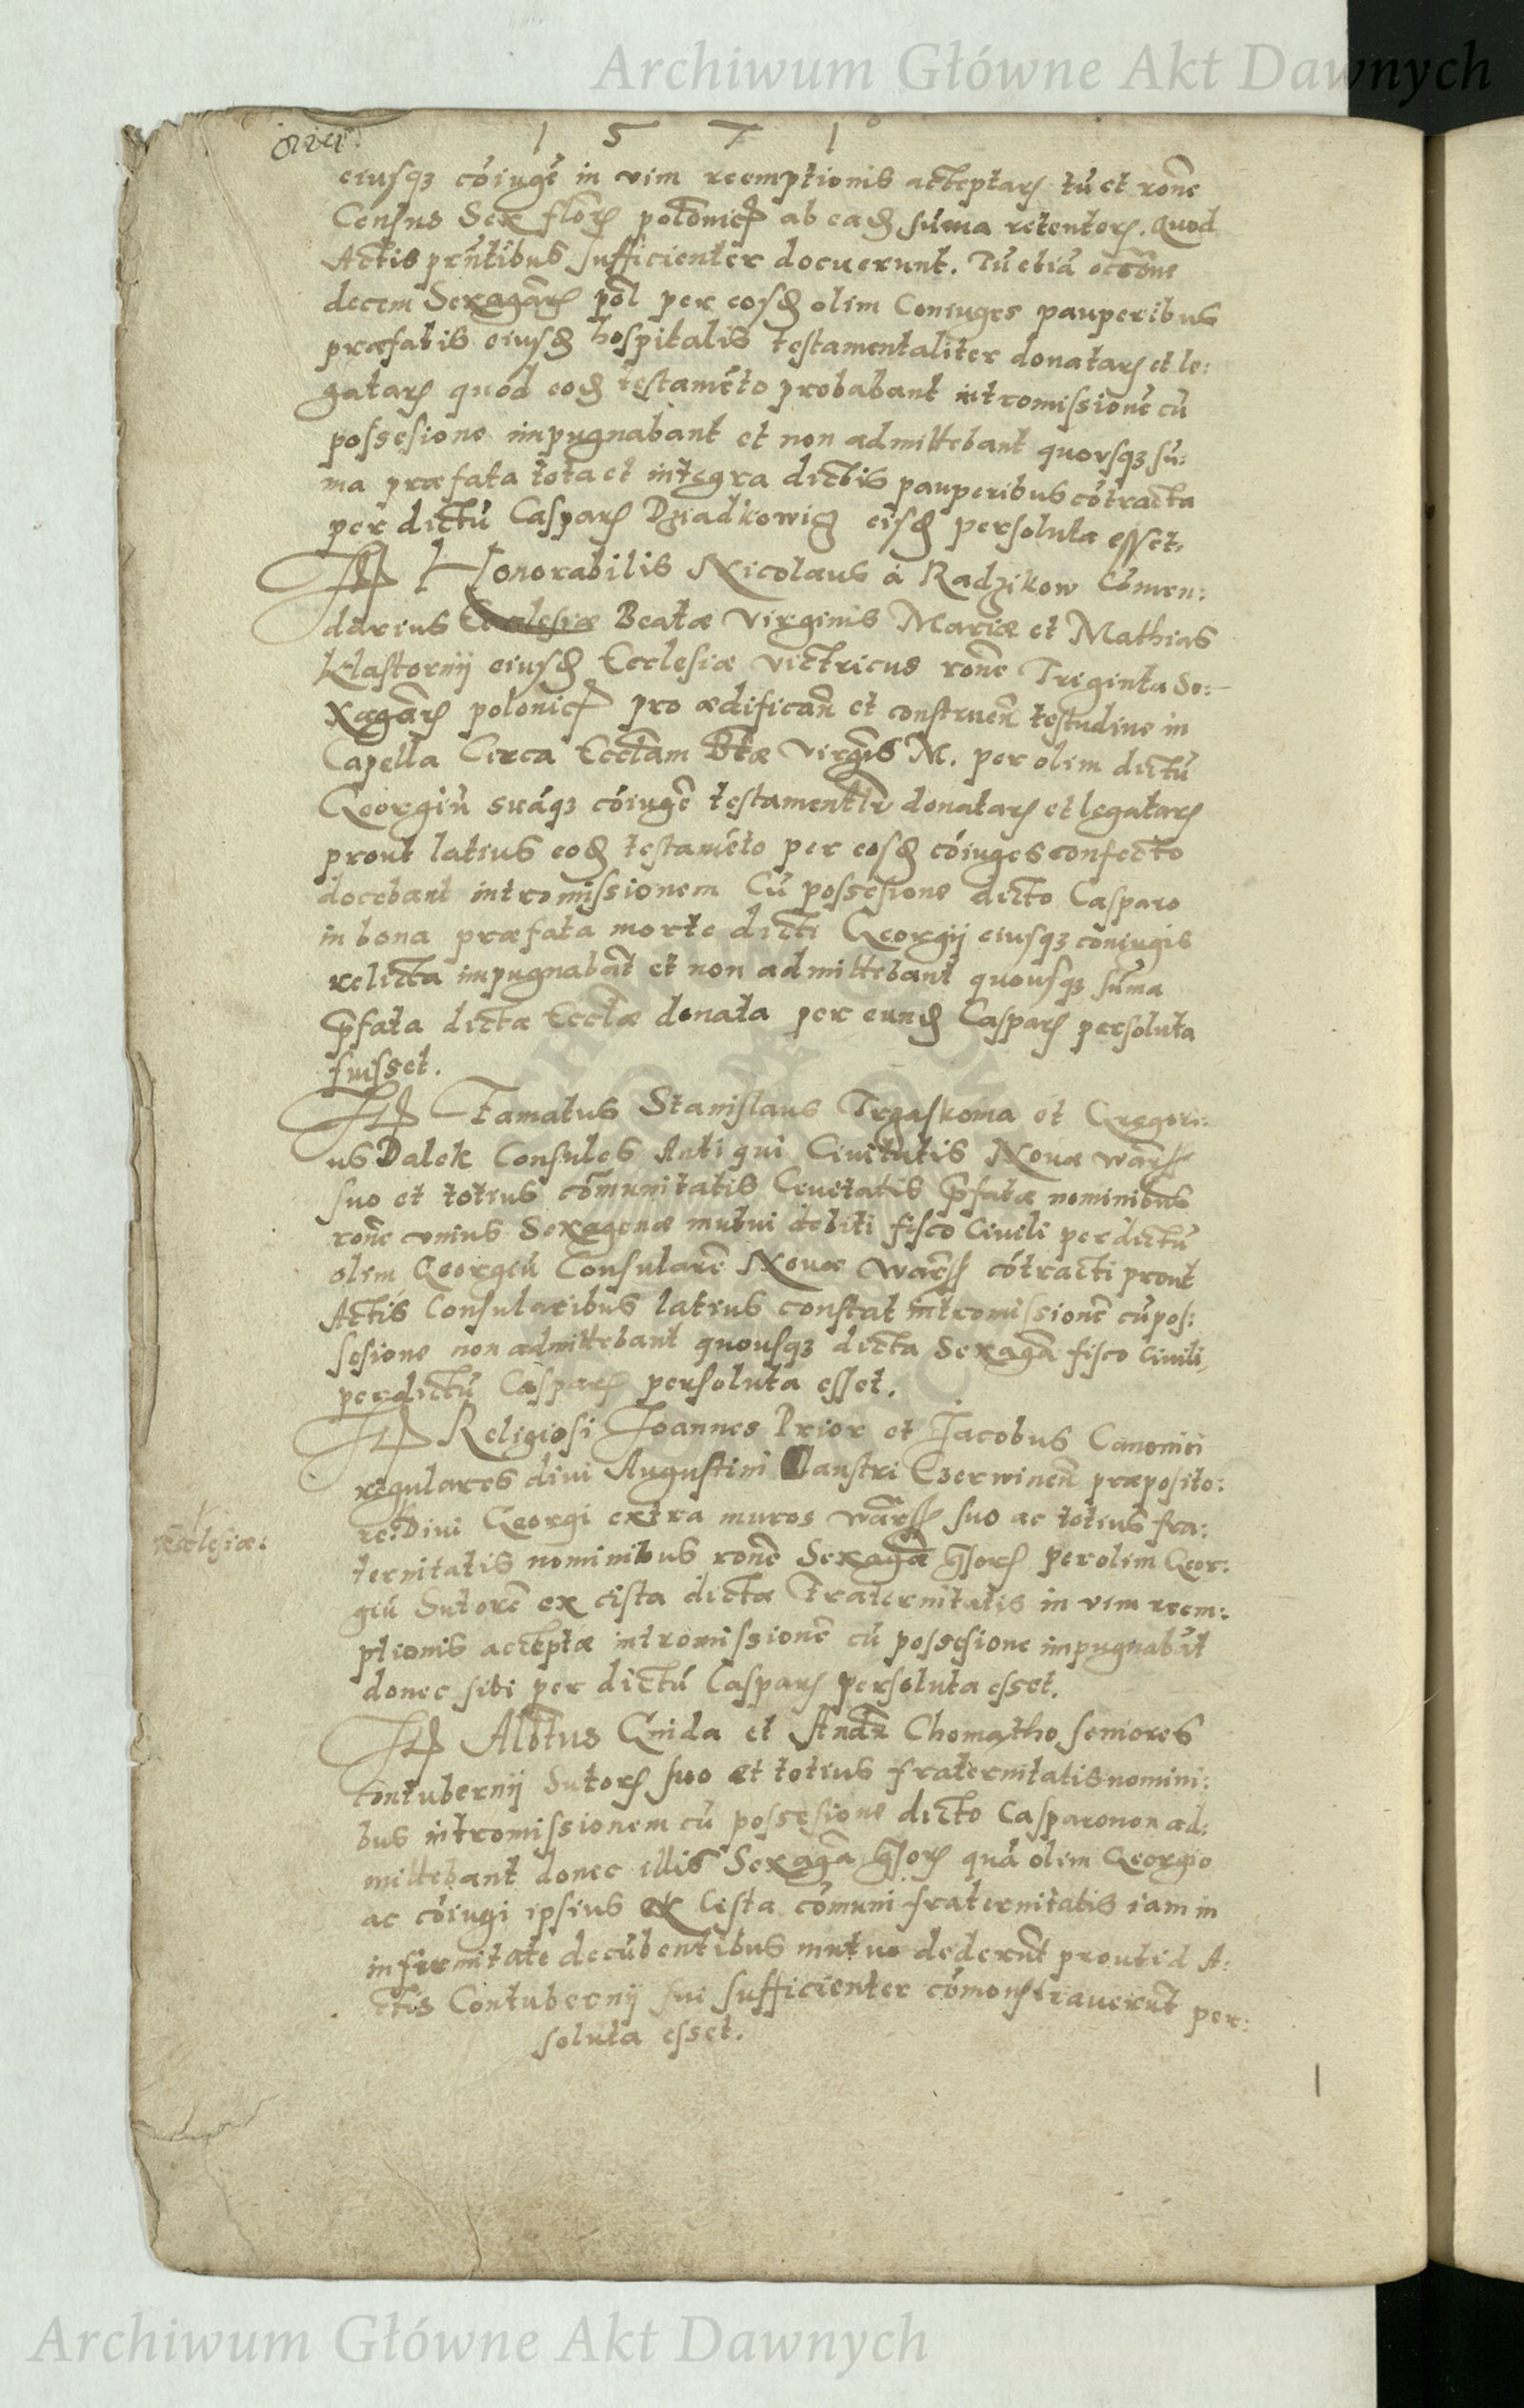 Archiwum Główne Akt Dawnych
1 5 7 1
eiusqz cõiugẽ in vim reemptionis acceptarꝝ tũ et rõne
Census Sex florꝝ polonicꝝ ab eadꝫ sũma retentorꝝ. Quod
Actis prñtibus sufficienter docuerunt. Tũ etiã occõne
decem Sexagãrꝝ pol per eosdꝫ olim Coniuges pauperibus
præfatis eiusdꝫ hospitalis testamentaliter donatarꝝ et le:
gatarꝝ quod eodꝫ testamẽto probabant intromissionẽ cũ
possesione impugnabant et non admittebant quousqz sũ:
ma præfata tota et integra dictis pauperibus cõtracta
per dictũ Casparꝝ Dziadkowicz eisdꝫ persoluta esset.
Itꝫ Honorabilis Nicolaus à Radzikow Cõmen:
darius Ecclesiæ Beatæ Virginis Mariæ et Mathias
Klastornij eiusdꝫ Ecclesiæ victricus rõne Triginta Se:
xagãrꝝ polonicꝝ pro ædificañ et construeñ testudine in
Capella Circa Eccľam Btæ Virgĩs M. per olim dictũ
Georgiũ suãqz cõiugẽ testamentľr donatarꝝ et legatarꝝ
prout latius eodꝫ testamẽto per eosdꝫ cõiuges confecto
docebant intromissionem Cũ possesione dicto Casparo
in bona præfata morte dicti Georgij eiusqz coniugis
relicta impugnabãt et non admittebant quousqz sũma
p̃fata dictæ Eccľæ donata per eundꝫ Casparꝝ persoluta
fuisset.
Itꝫ Famatus Stanislaus Trzaskoma et Gregori:
us Dalek Consules Antiqui Civitatis Novæ Warss
suo et totius cõmunitatis Civitatis p̃fatæ nominibus
rõne unius Sexagenæ mutui debiti fisco Civili per dictũ
olim Georgiũ Consularẽ Novæ Warss cõtracti prout
Actis Consularibus latius constat intromissionẽ cũ pos:
sesione non admittebant quousqz dicta Sexagã fisco Civili
per dictũ Casparꝝ persoluta esset.
Itꝫ Religiosi Joannes Prior et Jacobus Canonici
regulares divi Augustini Claustri Czerwineñ præposito:
ecclesiæ:
re: Divi Georgi extra muros Warss suo ac totius fra:
ternitatis nominibus rõne Sexagã grossorꝝ per olim Geor:
giũ Sutorẽ ex cista dictæ Fraternitatis in vim reem:
ptionis acceptæ intromissionẽ cũ possesione impugnabãt
donec sibi per dictũ Casparꝝ persoluta esset.
Itꝫ Albtus Gnida et Andz Chomątho seniores
Contubernij Sutorꝝ suo et totius fraternitatis nomini:
bus intromissionem cũ possesione dicto Casparo non ad:
mittebant donec illis Sexagã grossorꝝ quã olim Georgio
ac cõiugi ipsius ex Cista cõmuni fraternitatis iam in
infirmitate decũbentibus mutuo dederũt prout id A:
ctis Contubernij sui sufficienter cõmonstraverũt per:
soluta esset.
Archiwum Główne Akt Dawnych